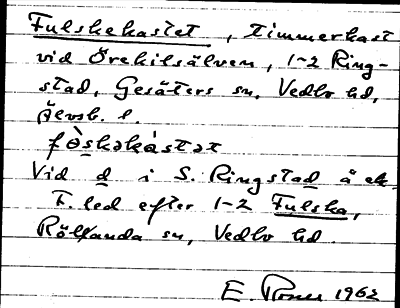 Fulskekastet, timmerkast
vid Örekilsälven, 1-2 Ring-
stad, Gesäters sn, Vedbo hd,
Älvsb. l.
fø̀skəkástət
Vid d i S. Ringstad å ek.
F. led efter 1-2 Fulska,
Rölanda sn, Vedbo hd.
E. 1962